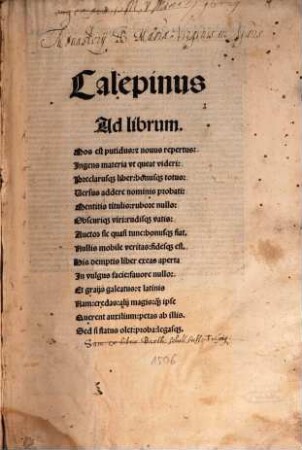 Monasterij B. Mariæ Virginis in
Calepinus
Ad librum.
Mos est putidus: ⁊ nouus repertus:
Ingens materia vt queat videri:
Preclarusq; liber: bonusq; totus:
Versus addere nominis probati:
Mentitis titulis: rubore nullo:
Obscuriq; viri: rudisq; vatis:
Auctos sic quasi tunc: bonusq; fiat,
Nullis mobile veritas: fidesq; est.
His demptis liber exeas aperta
In vulgus facie: fauore nullo:
Et graijs galeatus: ⁊ latinis
Nam: crydas: alij magisq; ipse
Querent auxilium: petas ab illis.
Sed si flatus olet: proba: legasq;.
Sum ex libris
1506